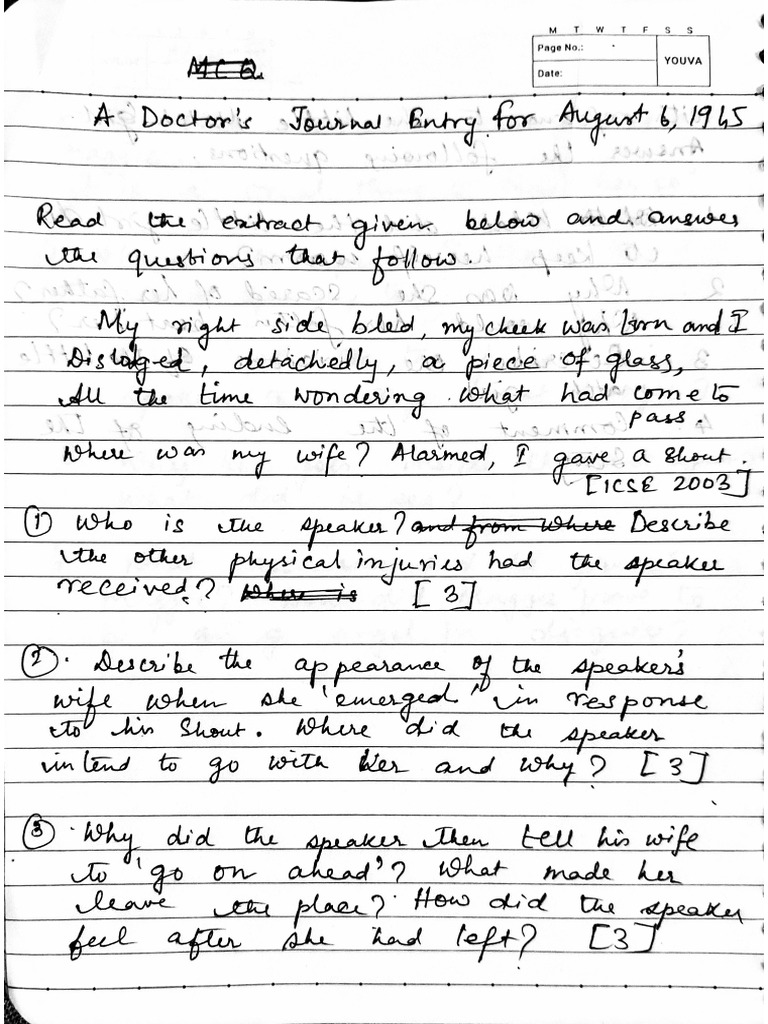 M T W T F S S
Page No.:
YOUVA
Date:
MCQ
A Doctor's Journal Entry for August 6, 1945
Read the extract given below and answer
the questions that follow.
My right side bled, my cheek was torn and I
Dislodged, detachedly, a piece of glass,
All the time wondering what had come to
pass.
Where was my wife? Alarmed, I gave a shout.
[ICSE 2003]
① Who is the speaker? and from where Describe
the other physical injuries had the speaker
received? Where is [3]
②. Describe the appearance of the speaker's
wife when she 'emerged" in response
to his shout. Where did the speaker
intend to go with her and why? [3]
③ Why did the speaker then tell his wife
to 'go on ahead'? What made her
leave the place? How did the speaker
feel after she had left? [3]